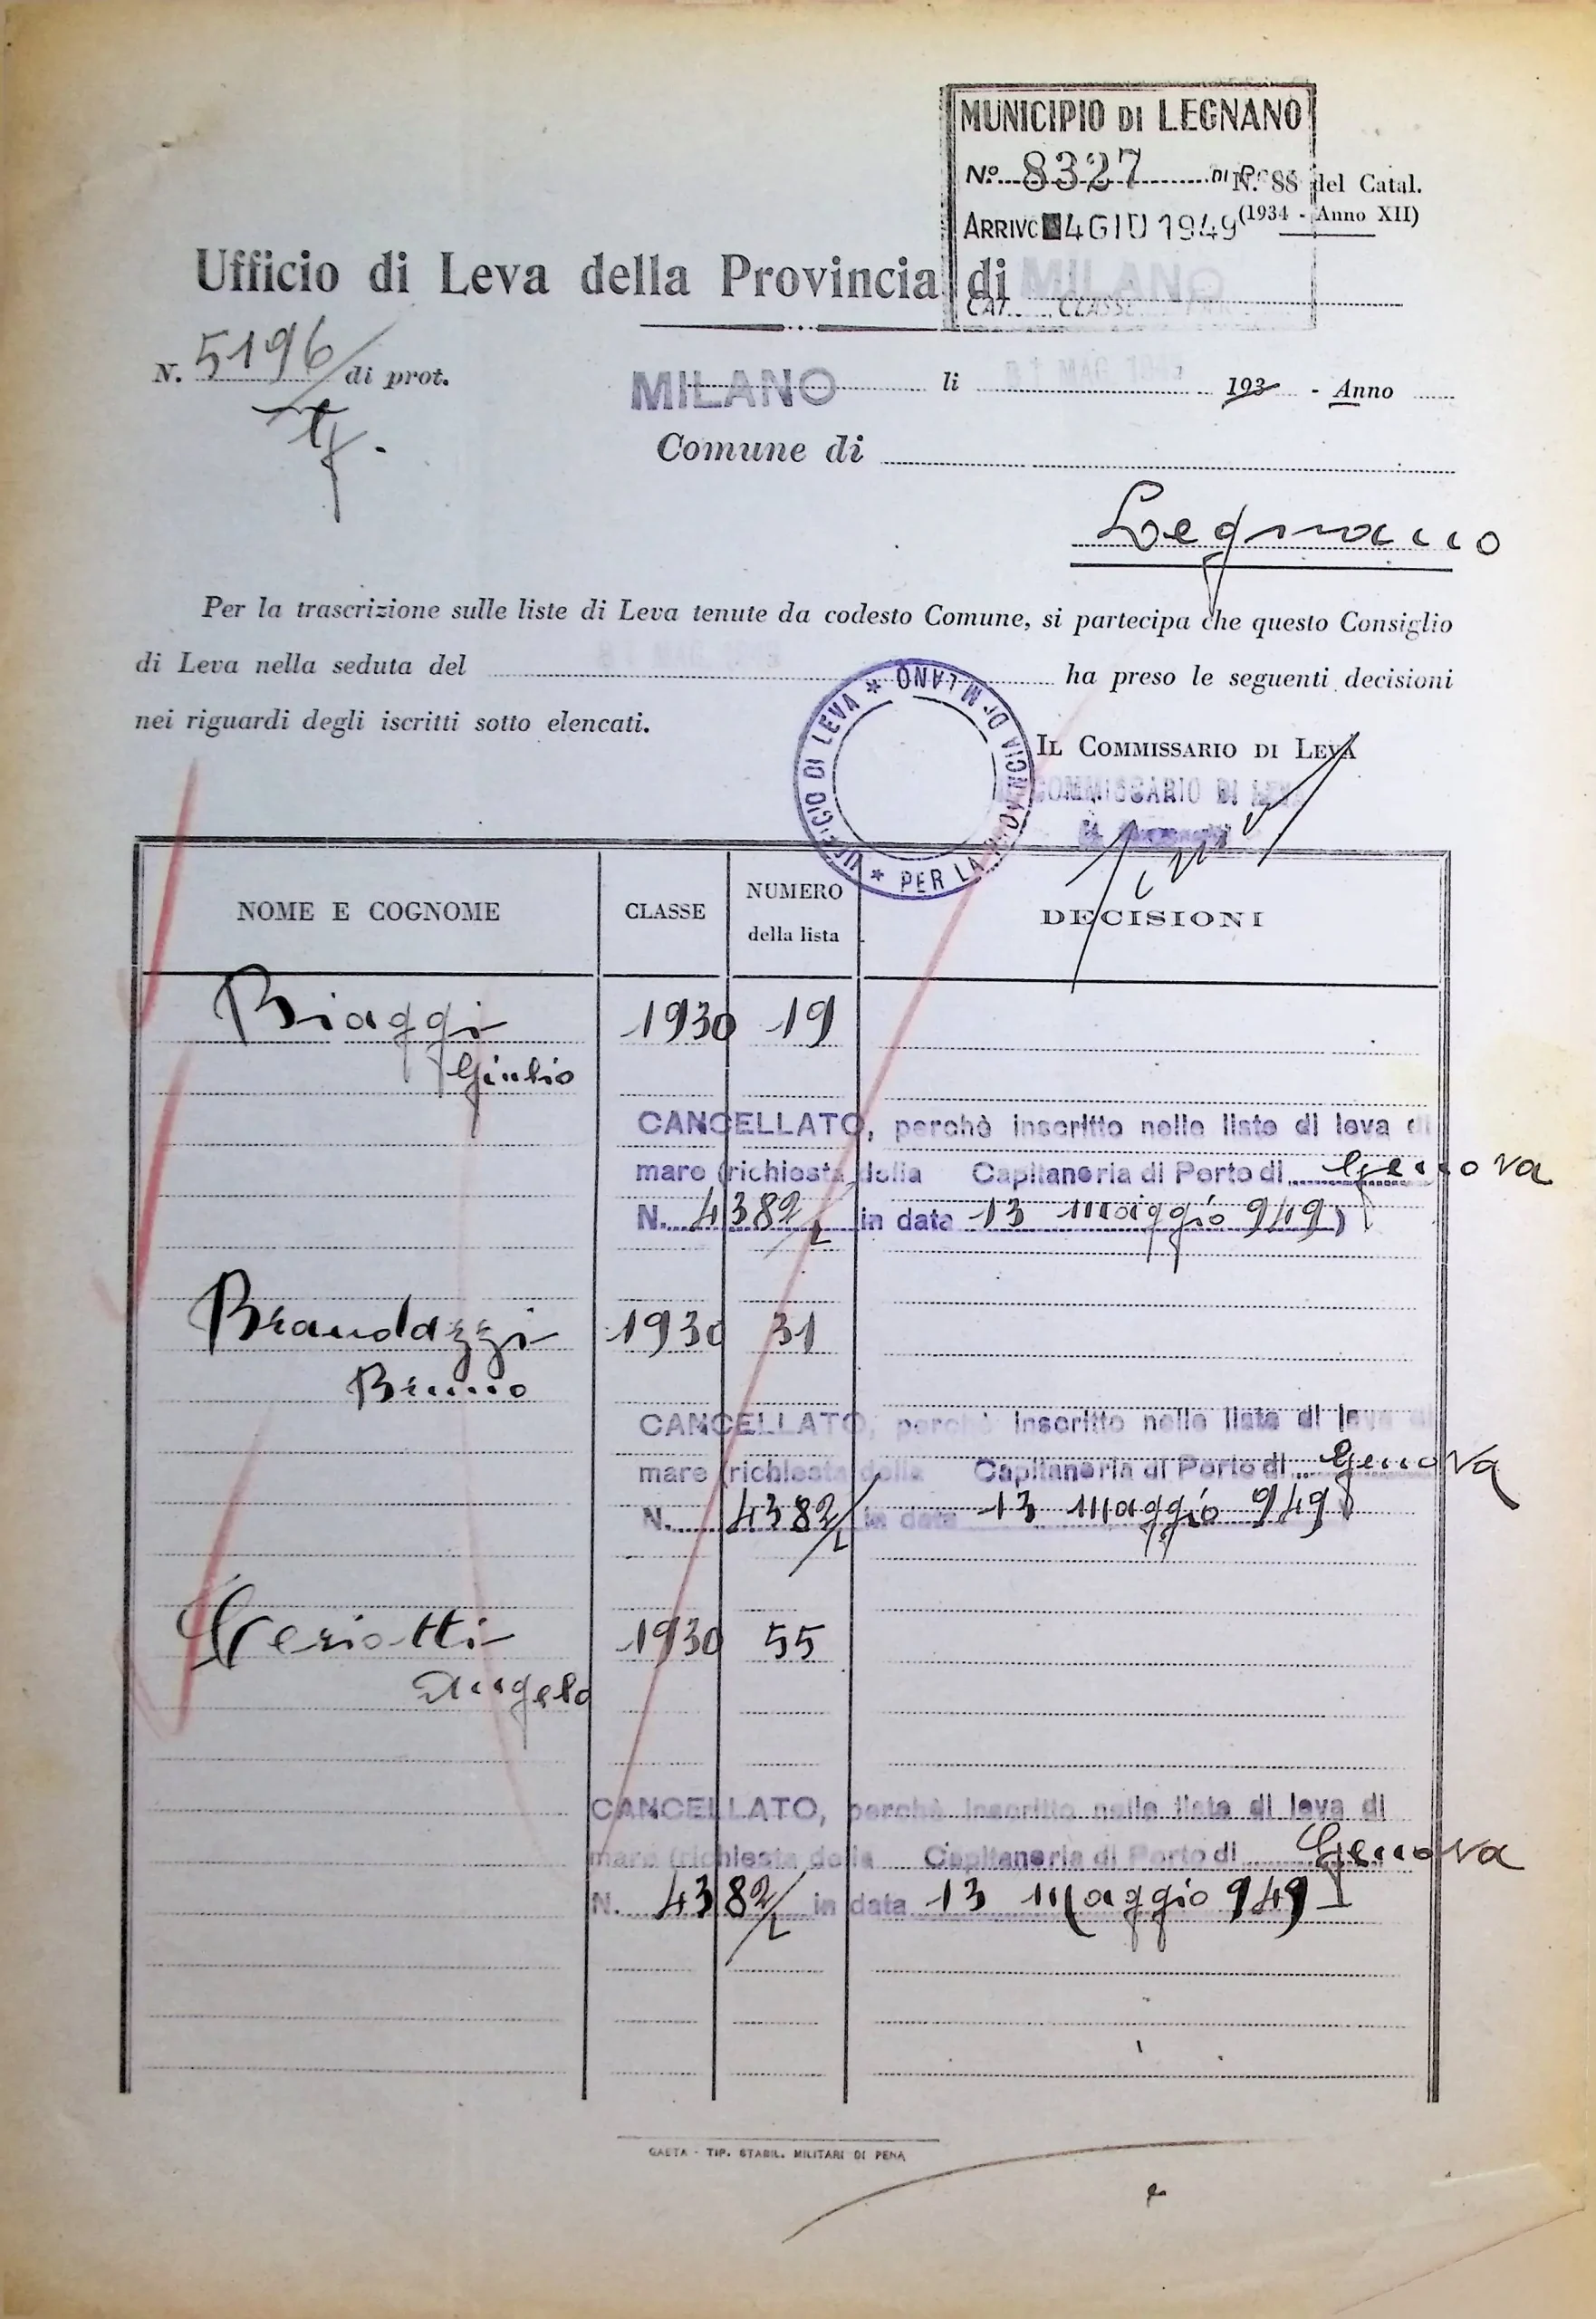 MUNICIPIO DI LEGNANO
Nº 8327 DI
N. 88 del Catal.
ARRIVO 4 GIU 1949
(1934 - Anno XII)
Ufficio di Leva della Provincia di MILANO
CAT. CLASSE
N. 5196 di prot.
MILANO li 31 MAG. 1949 193 - Anno
Comune di
Legnano
Per la trascrizione sulle liste di Leva tenute da codesto Comune, si partecipa che questo Consiglio
di Leva nella seduta del 31 MAG. 1949 ha preso le seguenti decisioni
nei riguardi degli iscritti sotto elencati.
UFFICIO DI LEVA * PER LA PROVINCIA DI MILANO *
IL COMMISSARIO DI LEVA
COMMISSARIO DI LEVA
NOME E COGNOME CLASSE NUMERO della lista DECISIONI
Biaggi 1930 19
Giulio
CANCELLATO, perchè inscritto nelle liste di leva di
mare (richiesta della Capitaneria di Porto di Genova
N. 4382/L in data 13 maggio 949)
Brandazzi 1930 31
Bruno
CANCELLATO, perchè inscritto nelle liste di leva di
mare (richiesta della Capitaneria di Porto di Genova
N. 4382/L in data 13 maggio 949
Ceriotti 1930 55
Angelo
CANCELLATO, perchè inscritto nelle liste di leva di
mare (richiesta della Capitaneria di Porto di Genova
N. 4382/L in data 13 maggio 949
GAETA - TIP. STABIL. MILITARI DI PENA